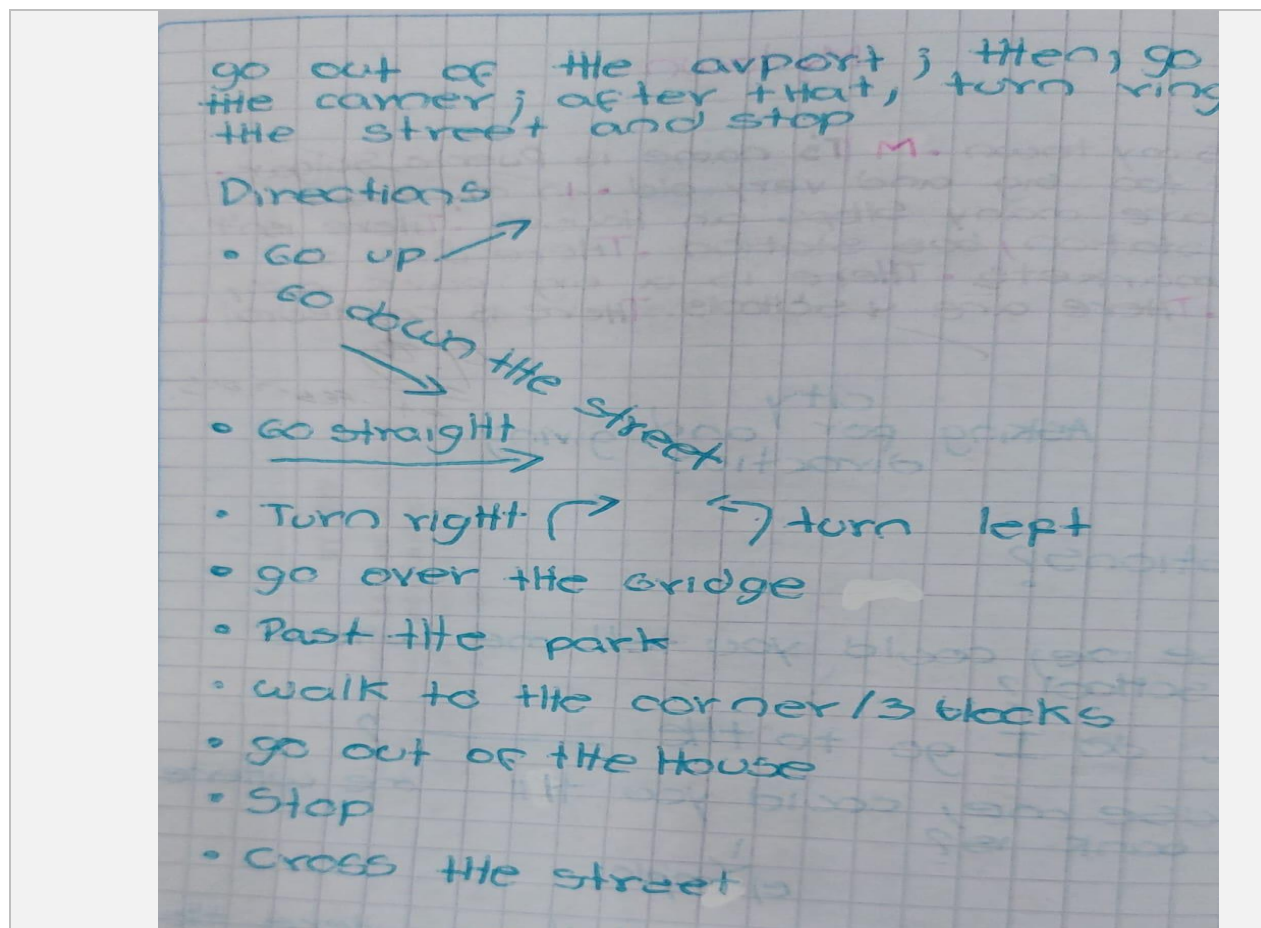 go out of the arport; then, go
the carner; after that, turn ring
the street and stop
Directions
• Go up
Go down the street
• Go straight
• Turn right turn left
• go over the bridge
• Past the park
• walk to the corner/3 blocks
• go out of the House
• Stop
• Cross the street